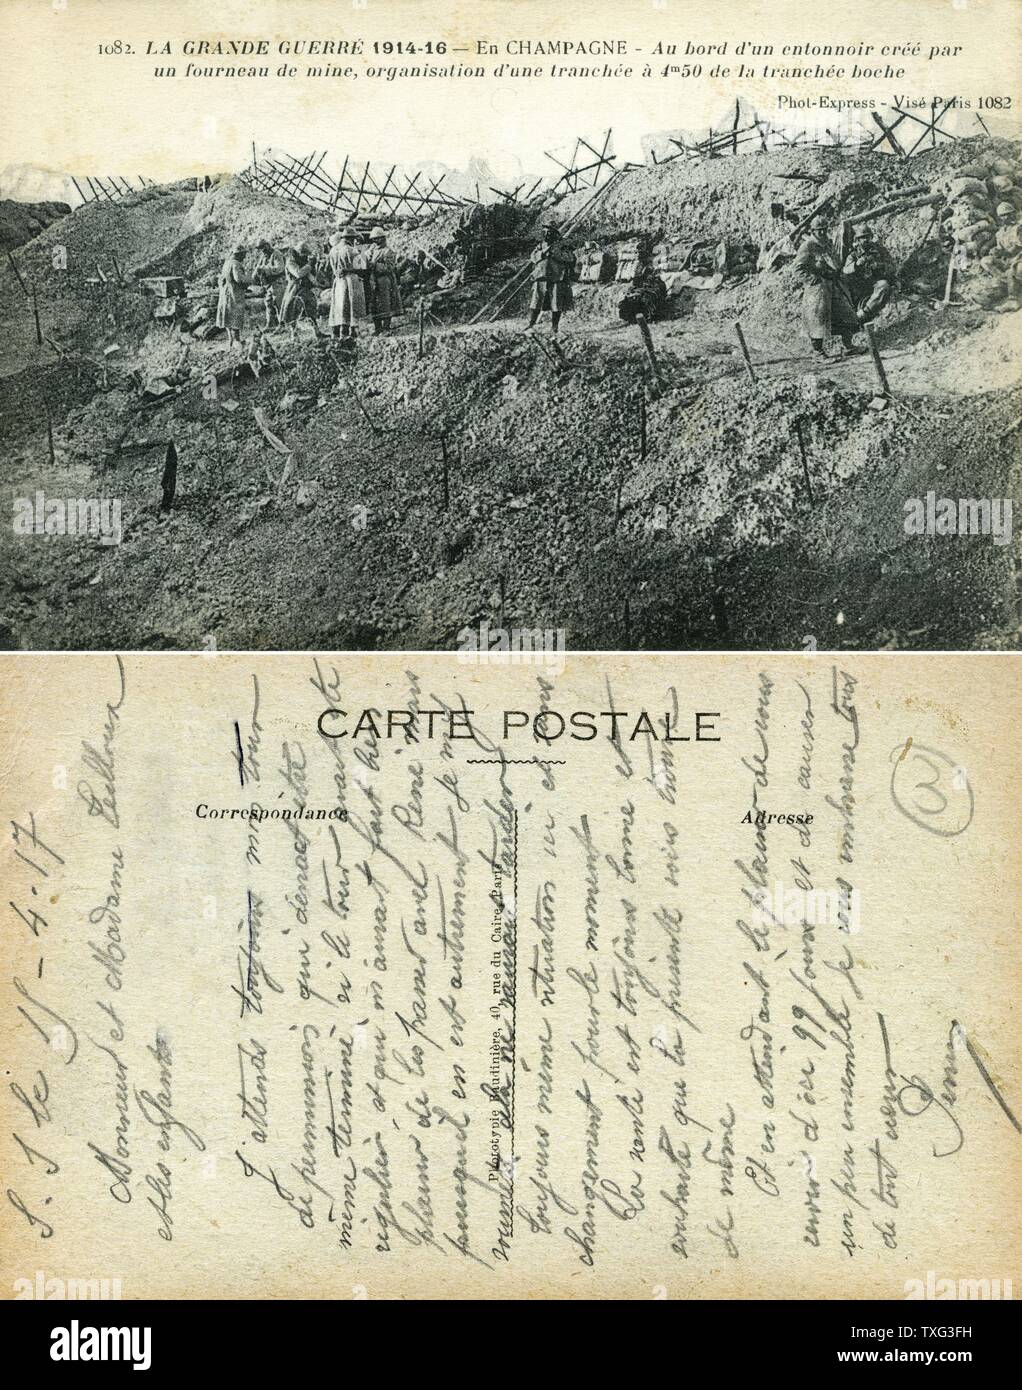 1082. LA GRANDE GUERRE 1914-16 — En CHAMPAGNE - Au bord d'un entonnoir créé par
un fourneau de mine, organisation d'une tranchée à 4m50 de la tranchée boche
Phot-Express - Visé Paris 1082
alamy
CARTE POSTALE
Correspondance
Adresse
Phototypie Baudinière, 40, rue du Caire, Paris
S. S le 15 - 4 - 17
Monsieur et Madame
et les enfants
J'attends toujours mon tour
de permission qui devait être
même terminé si le tour avait été
régulier et qui m'aurait fait
plaisir de les passer avec René mais
puisqu'il en est autrement je me
toujours même situation ici et sans
changement pour le moment
La santé est toujours bonne et
souhaite que la présente vous trouve
de même
Et en attendant le plaisir de vous
revoir d'ici 99 jours et de causer
un peu ensemble je vous embrasse tous
de tout cœur
alamy
Image ID: TXG3FH
www.alamy.com